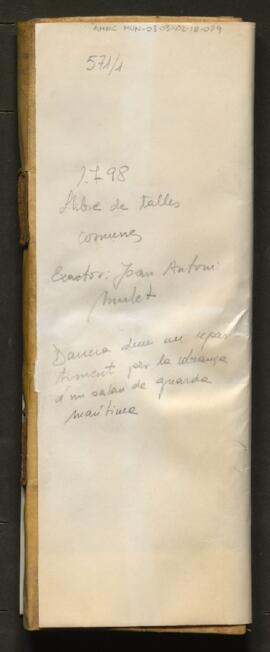 AHMC MUN-03-03-02-18-029
571/1
1798
Llibre de talles
comunes
Exactor: Joan Antoni
Mulet
Darrera duu un repar
timent per la cobrança
d'un salari de guarda
marítima